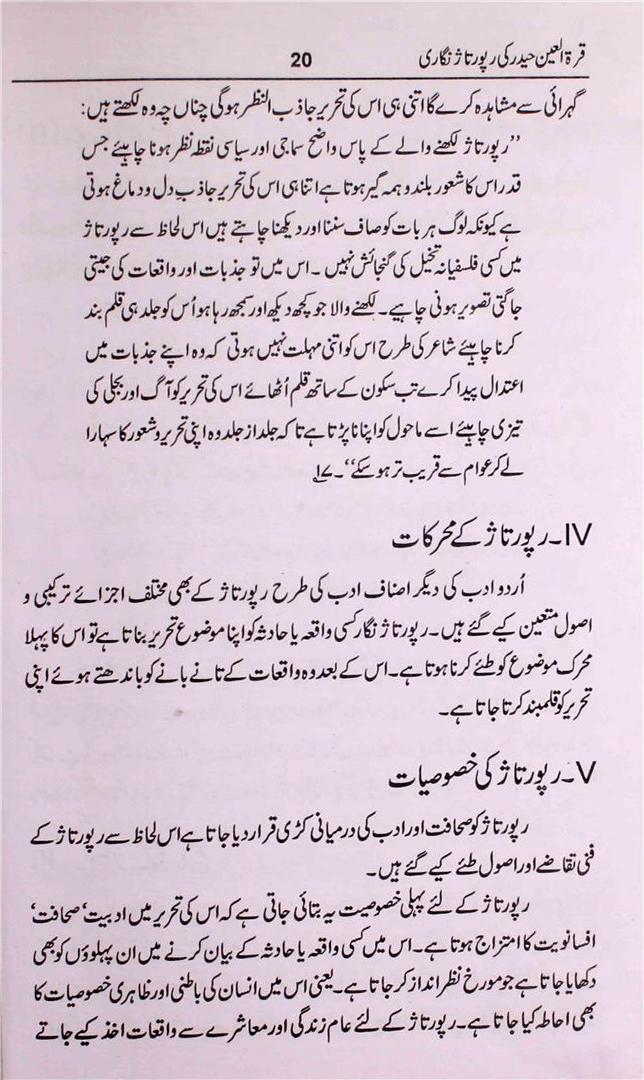 قرۃ العین حیدر کی رپورتاژ نگاری 20
گہرائی سے مشاہدہ کرے گا اتنی ہی اس کی تحریر جاذب النظر ہوگی چناں چہ وہ لکھتے ہیں:
’’رپورتاژ لکھنے والے کے پاس واضح سماجی اور سیاسی نقطہ نظر ہونا چاہیئے جس
قدر اس کا شعور بلند و ہمہ گیر ہوتا ہے اتنا ہی اس کی تحریر جاذب دل و دماغ ہوتی
ہے کیونکہ لوگ ہر بات کو صاف سننا اور دیکھنا چاہتے ہیں اس لحاظ سے رپورتاژ
میں کسی فلسفیانہ تخیل کی گنجائش نہیں ۔ اس میں تو جذبات اور واقعات کی جیتی
جاگتی تصویر ہونی چاہیے۔ لکھنے والا جو کچھ دیکھ اور سمجھ رہا ہو اُس کو جلد ہی قلم بند
کرنا چاہیئے شاعر کی طرح اس کو اتنی مہلت نہیں ہوتی کہ وہ اپنے جذبات میں
اعتدال پیدا کرے تب سکون کے ساتھ قلم اُٹھائے اس کی تحریر کو آگ اور بجلی کی
تیزی چاہیئے اسے ماحول کو اپنانا پڑتا ہے تا کہ جلد از جلد وہ اپنی تحریر و شعور کا سہارا
لے کر عوام سے قریب تر ہو سکے‘‘۔ ۱۷
IV۔ رپورتاژ کے محرکات
اُردو ادب کی دیگر اصناف ادب کی طرح رپورتاژ کے بھی مختلف اجزائے ترکیبی و
اصول متعین کیے گئے ہیں۔ رپورتاژ نگار کسی واقعہ یا حادثہ کو اپنا موضوع تحریر بناتا ہے تو اس کا پہلا
محرک موضوع کو طئے کرنا ہوتا ہے۔ اس کے بعد وہ واقعات کے تانے بانے کو باندھتے ہوئے اپنی
تحریر کو قلمبند کرتا جاتا ہے۔
V۔ رپورتاژ کی خصوصیات
رپورتاژ کو صحافت اور ادب کی درمیانی کڑی قرار دیا جاتا ہے اس لحاظ سے رپورتاژ کے
فنی تقاضے اور اصول طئے کیے گئے ہیں۔
رپورتاژ کے لئے پہلی خصوصیت یہ بتائی جاتی ہے کہ اس کی تحریر میں ادبیت‘ صحافت‘
افسانویت کا امتزاج ہوتا ہے۔ اس میں کسی واقعہ یا حادثہ کے بیان کرنے میں ان پہلوؤں کو بھی
دکھایا جاتا ہے جو مورخ نظر انداز کر جاتا ہے۔ یعنی اس میں انسان کی باطنی اور ظاہری خصوصیات کا
بھی احاطہ کیا جاتا ہے۔ رپورتاژ کے لئے عام زندگی اور معاشرے سے واقعات اخذ کیے جاتے